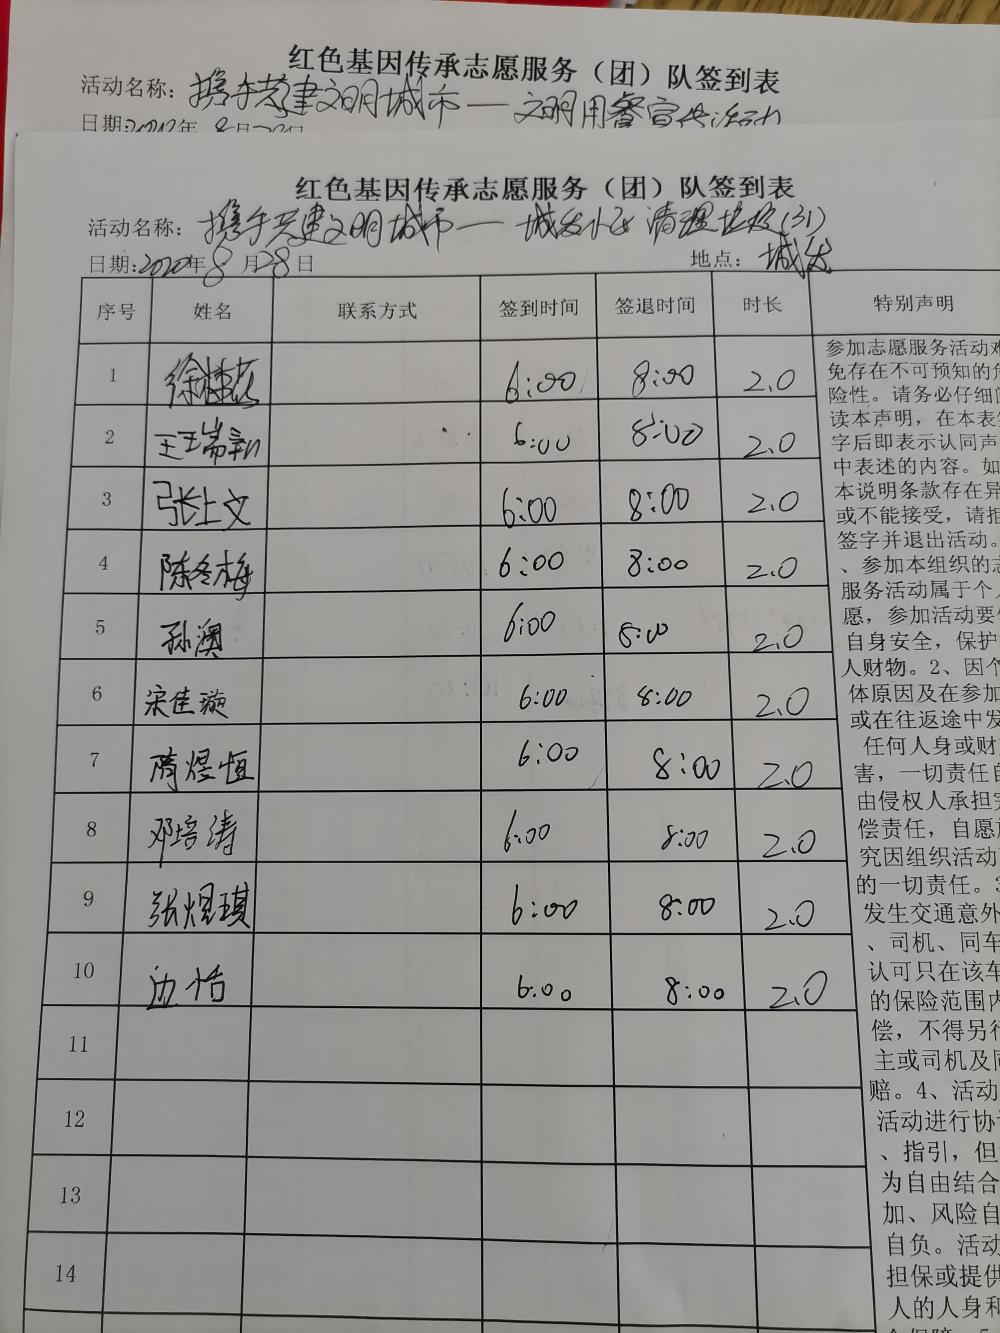 红色基因传承志愿服务（团）队签到表
活动名称：携手共建文明城市—文明用餐宣传活动
日期：2020年8月28日
红色基因传承志愿服务（团）队签到表
活动名称：携手共建文明城市—城发小区清理垃圾(31)
日期：2020年8月28日 地点：城发
序号 姓名 联系方式 签到时间 签退时间 时长 特别声明
1 徐桂花 6:00 8:00 2.0
2 王瑞新 6:00 8:00 2.0
3 张上文 6:00 8:00 2.0
4 陈冬梅 6:00 8:00 2.0
5 孙澳 6:00 8:00 2.0
6 宋佳璇 6:00 8:00 2.0
7 隋煜恒 6:00 8:00 2.0
8 邓培涛 6:00 8:00 2.0
9 张煜琪 6:00 8:00 2.0
10 边恬 6:00 8:00 2.0
11
12
13
14
参加志愿服务活动难
免存在不可预知的危
险性。请务必仔细阅
读本声明，在本表签
字后即表示认同声
中表述的内容。如
本说明条款存在异
或不能接受，请拒
签字并退出活动。
、参加本组织的志
服务活动属于个人
愿，参加活动要
自身安全，保护
人财物。2、因个
体原因及在参加
或在往返途中发
任何人身或财
害，一切责任自
由侵权人承担
偿责任，自愿
究因组织活动
的一切责任。3
发生交通意外
、司机、同车
认可只在该车
的保险范围内
偿，不得另行
主或司机及同
赔。4、活动
活动进行协
、指引，但
为自由结合
加、风险自
自负。活动
担保或提供
人的人身和